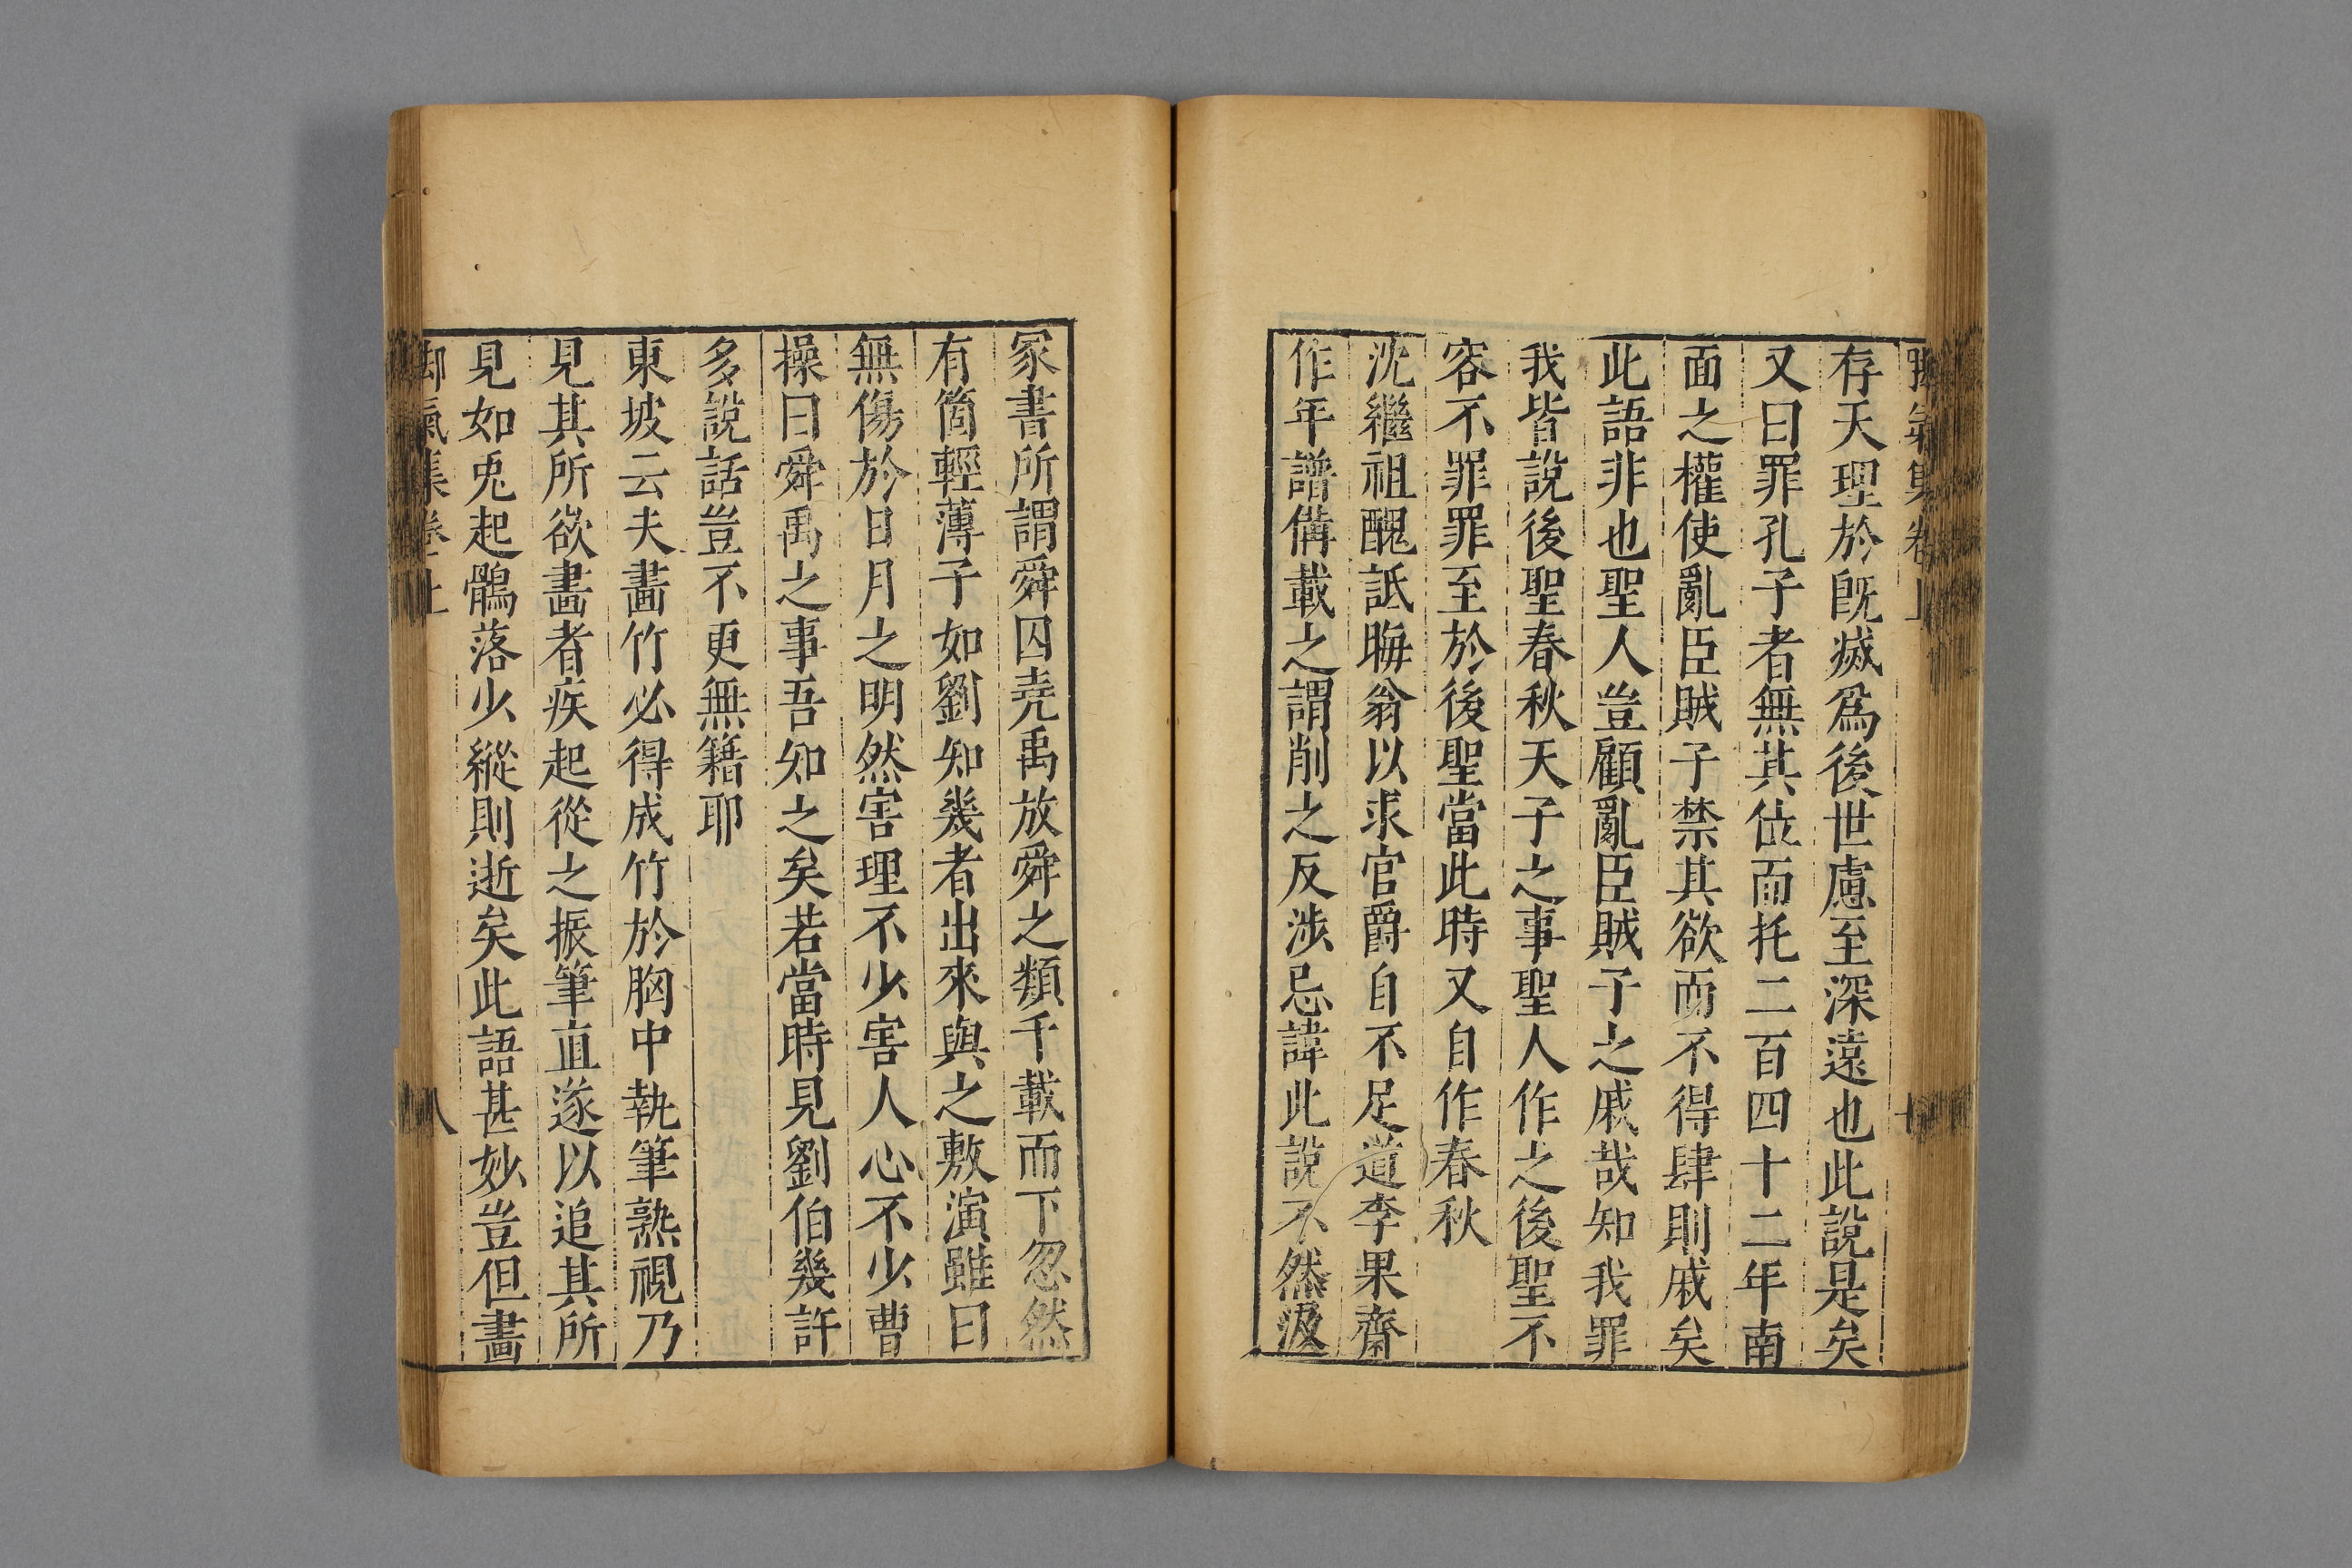 存天理於既滅爲後世慮至深遠也此說是矣
又曰罪孔子者無其位而托二百四十二年南
面之權使亂臣賊子禁其欲而不得肆則戚矣
此語非也聖人豈顧亂臣賊子之戚哉知我罪
我皆說後聖春秋天子之事聖人作之後聖不
容不罪罪至於後聖當此時又自作春秋
沈繼祖醜詆晦翁以求官爵自不足道李果齋
作年譜備載之謂削之反涉忌諱此說不然汲
冢書所謂舜囚堯禹放舜之類千載而下忽然
有箇輕薄子如劉知幾者出來與之敷演雖曰
無傷於日月之明然害理不少害人心不少曹
操曰舜禹之事吾知之矣若當時見劉伯幾許
多說話豈不更無籍耶
東坡云夫畵竹必得成竹於胸中執筆熟視乃
見其所欲畵者疾起從之振筆直遂以追其所
見如兎起鶻落少縱則逝矣此語甚妙豈但畵
脚氣集卷上
八